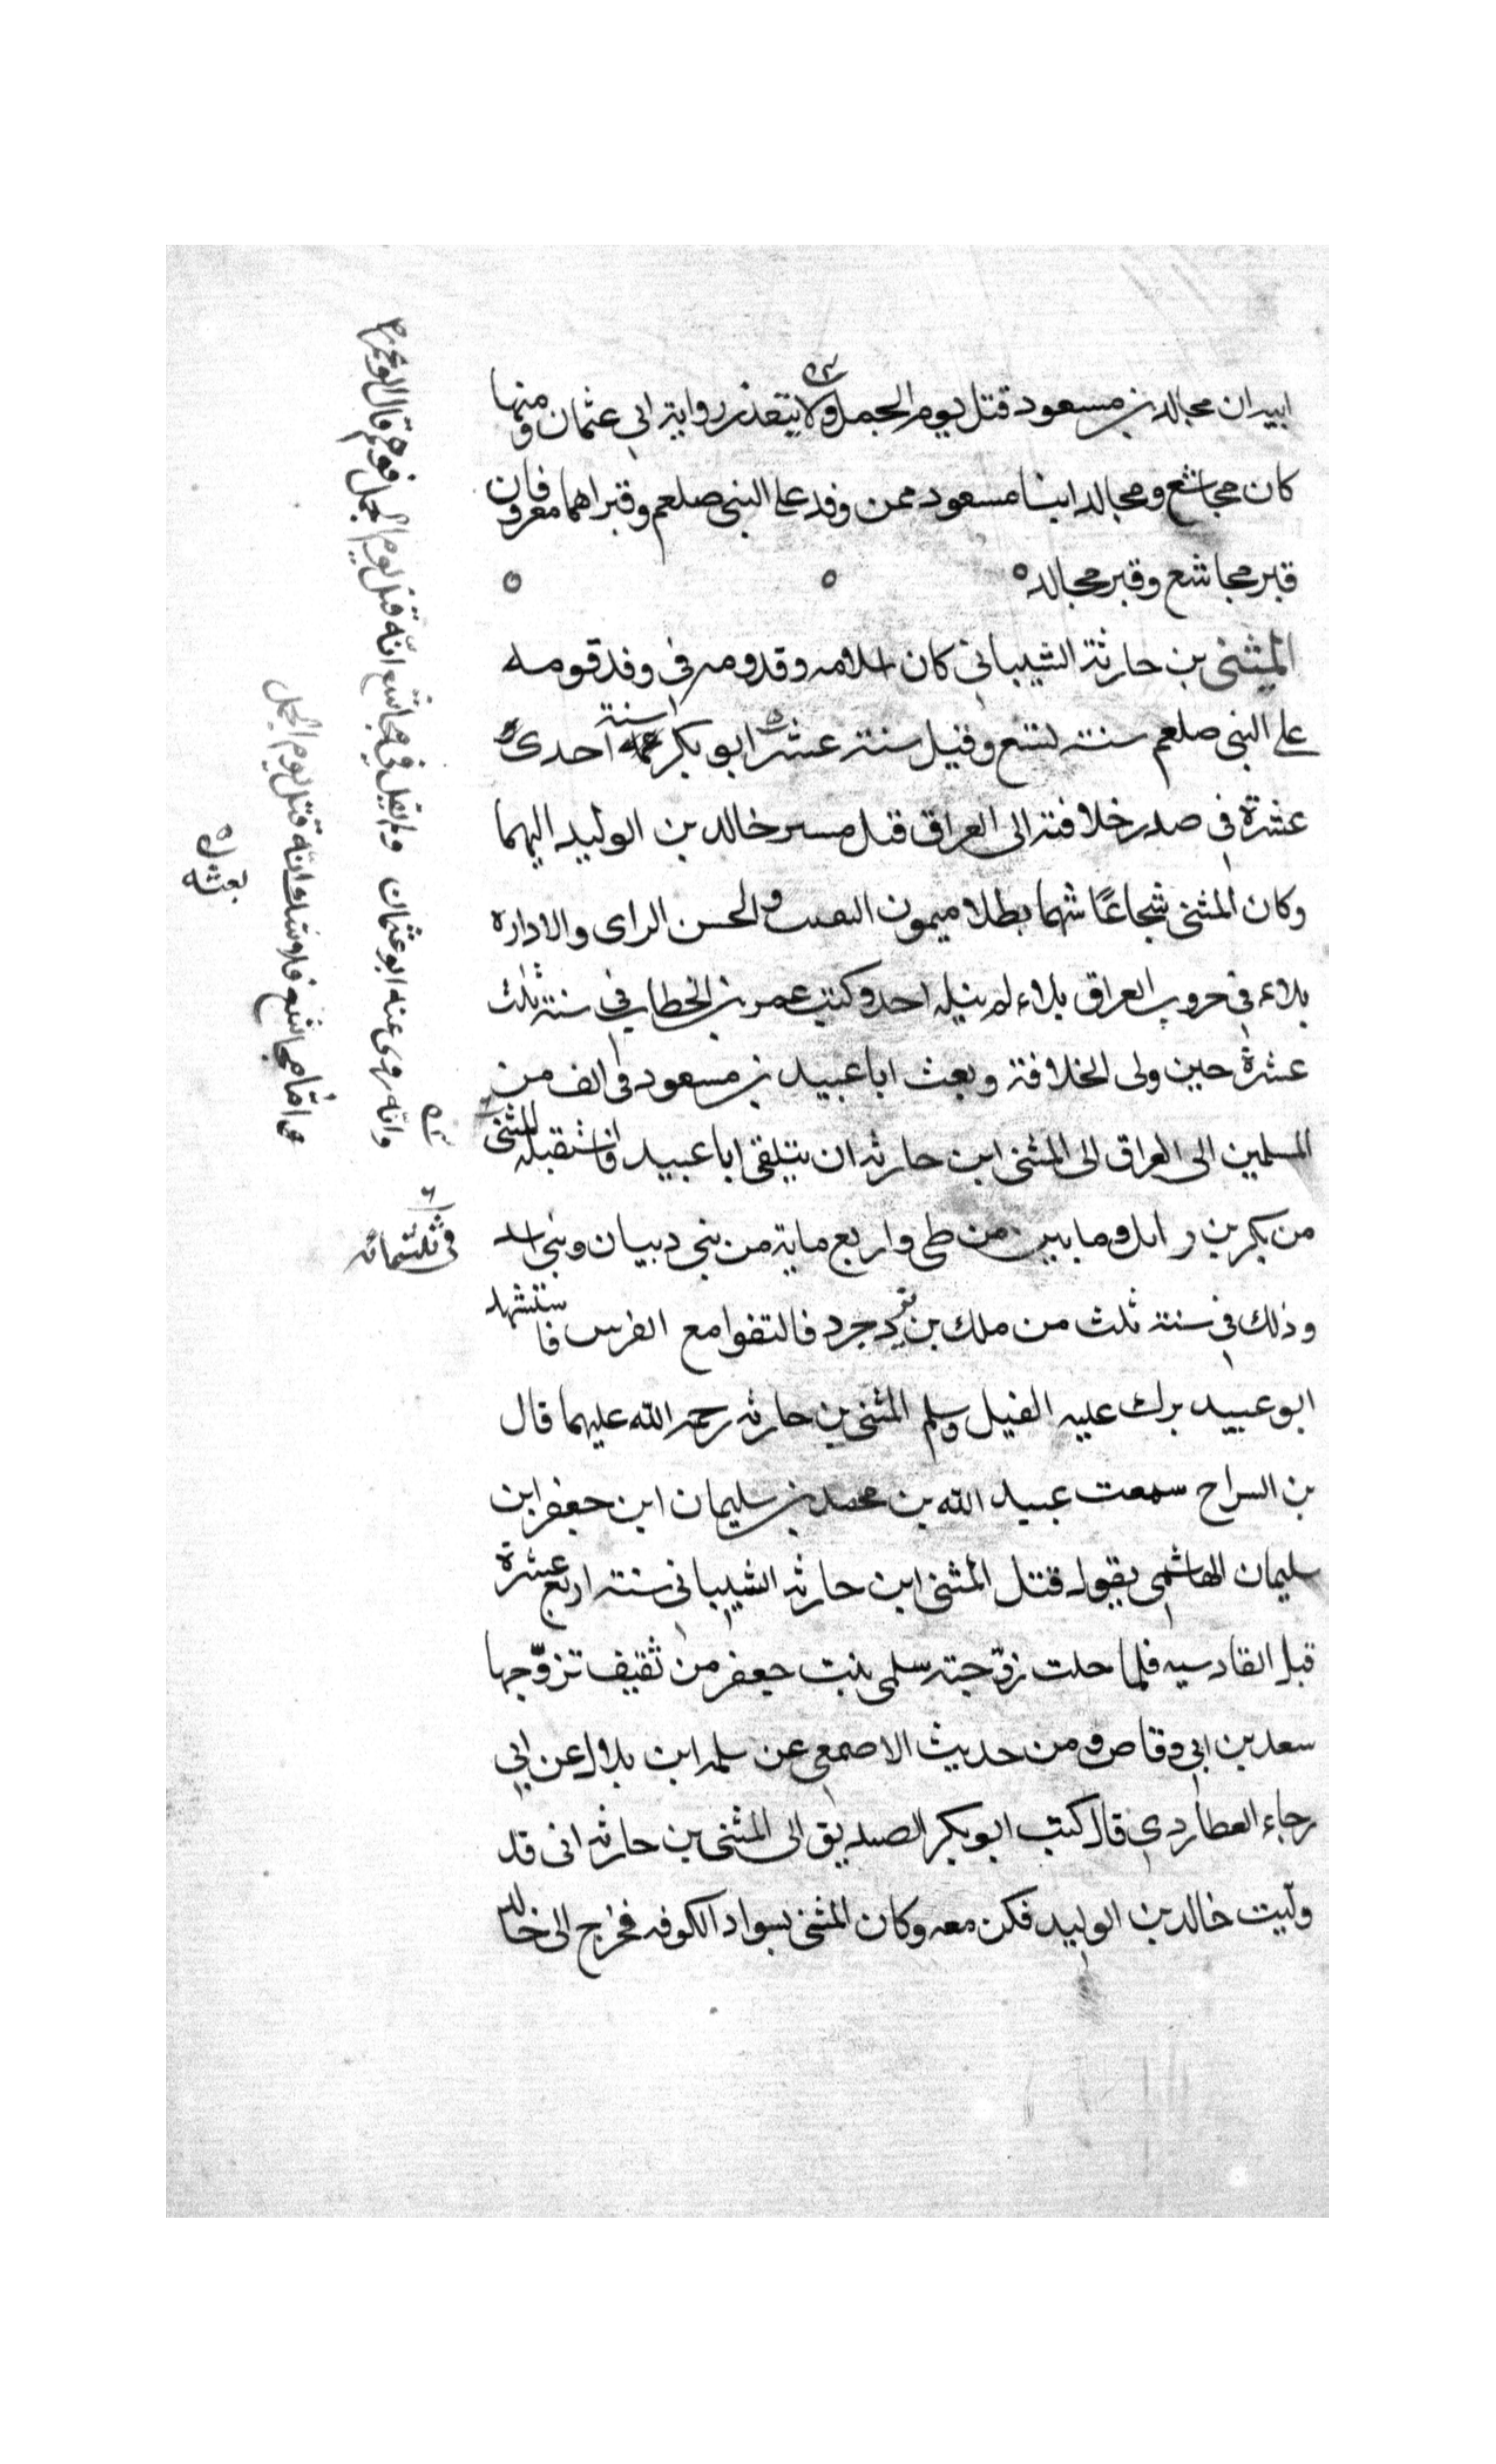 ابيه ان مجالد بن مسعود قتل يوم الجمل ولا يتعذر رواية ابي عثمان ومنها
كان مجاشع ومجالد ابنا مسعود ممن وفد على النبي صلعم وقبراهما معروفان
قبر مجاشع وقبر مجالد ه ه ه
المثنى بن حارثة الشيباني كان اسلامه وقدومه في وفد قومه
على النبي صلعم سنة تسع وقيل سنة عشر ابو بكر سنة احدى
عشرة في صدر خلافته الى العراق قبل مسير خالد بن الوليد اليهما
وكان المثنى شجاعًا شهما بطلا ميمون النقيبة والحسن الراى والاداره
بلاءه في حروب العراق بلاء لم يبله احد وكتب عمر بن الخطاب في سنة ثلث
عشرة حين ولى الخلافة وبعث ابا عبيد بن مسعود في الف من
المسلمين الى العراق الى المثنى ابن حارثه ان يتلقى ابا عبيد فاستقبله المثنى
من بكر بن وايل ومايتين من طى واربع ماية من بني دبيان وبني اسد
وذلك في سنة ثلث من ملك بن يزدجرد فالتقوا مع الفرس فاستشهد
ابو عبيد برك عليه الفيل وسلم المثنى بن حارثه رحمة الله عليهما قال
بن السراح سمعت عبيد الله بن محمد بن سليمان ابن جعفر ابن
سليمان الهاشمي يقول قتل المثنى ابن حارثه الشيباني سنة اربع عشرة
قبل القادسيه فلما حلت زوّجته سلمى بنت جعفر من ثقيف تزوّجها
سعد بن ابي وقاص ومن حديث الاصمعي عن سلمه ابن بلال عن ابي
رجاء العطاردي قال كتب ابو بكر الصديق الى المثنى بن حارثه انى قد
ولّيت خالد بن الوليد فكن معه وكان المثنى بسواد الكوفه فخرج الى خالد
وانه روى عنه ابو عثمان ولم يقل في مجاشع انّه قتل يوم الجمل فوهم قال ابو عمر
امّا مجاشع فلا شك انّه قتل يوم الجمل
بعثه
في ثلثمائه